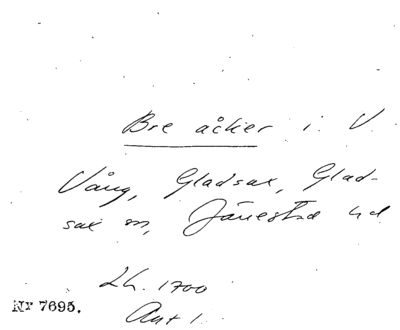 Bre åcker i V.
Vång, Gladsax, Glad-
sax sn, Järrestad hd
Lh. 1700
Akt 1.
Nr 7695.